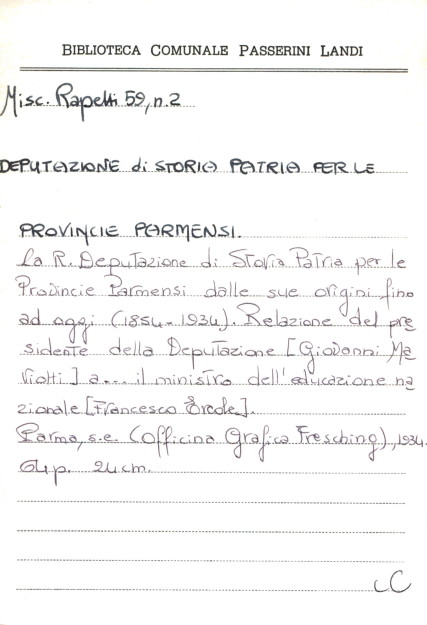 BIBLIOTECA COMUNALE PASSERINI LANDI
Misc. Rapetti 59, n. 2
DEPUTAZIONE di STORIA PATRIA PER LE
PROVINCIE PARMENSI.
La R. Deputazione di Storia Patria per le
Provincie Parmensi dalle sue origini fino
ad oggi (1854-1934). Relazione del pre
sidente della Deputazione [Giovanni Ma
riotti] a... il ministro dell'educazione na
zionale [Francesco Ercole].
Parma, s.e. (Officina Grafica Fresching), 1934.
64 p. 24 cm.
CC